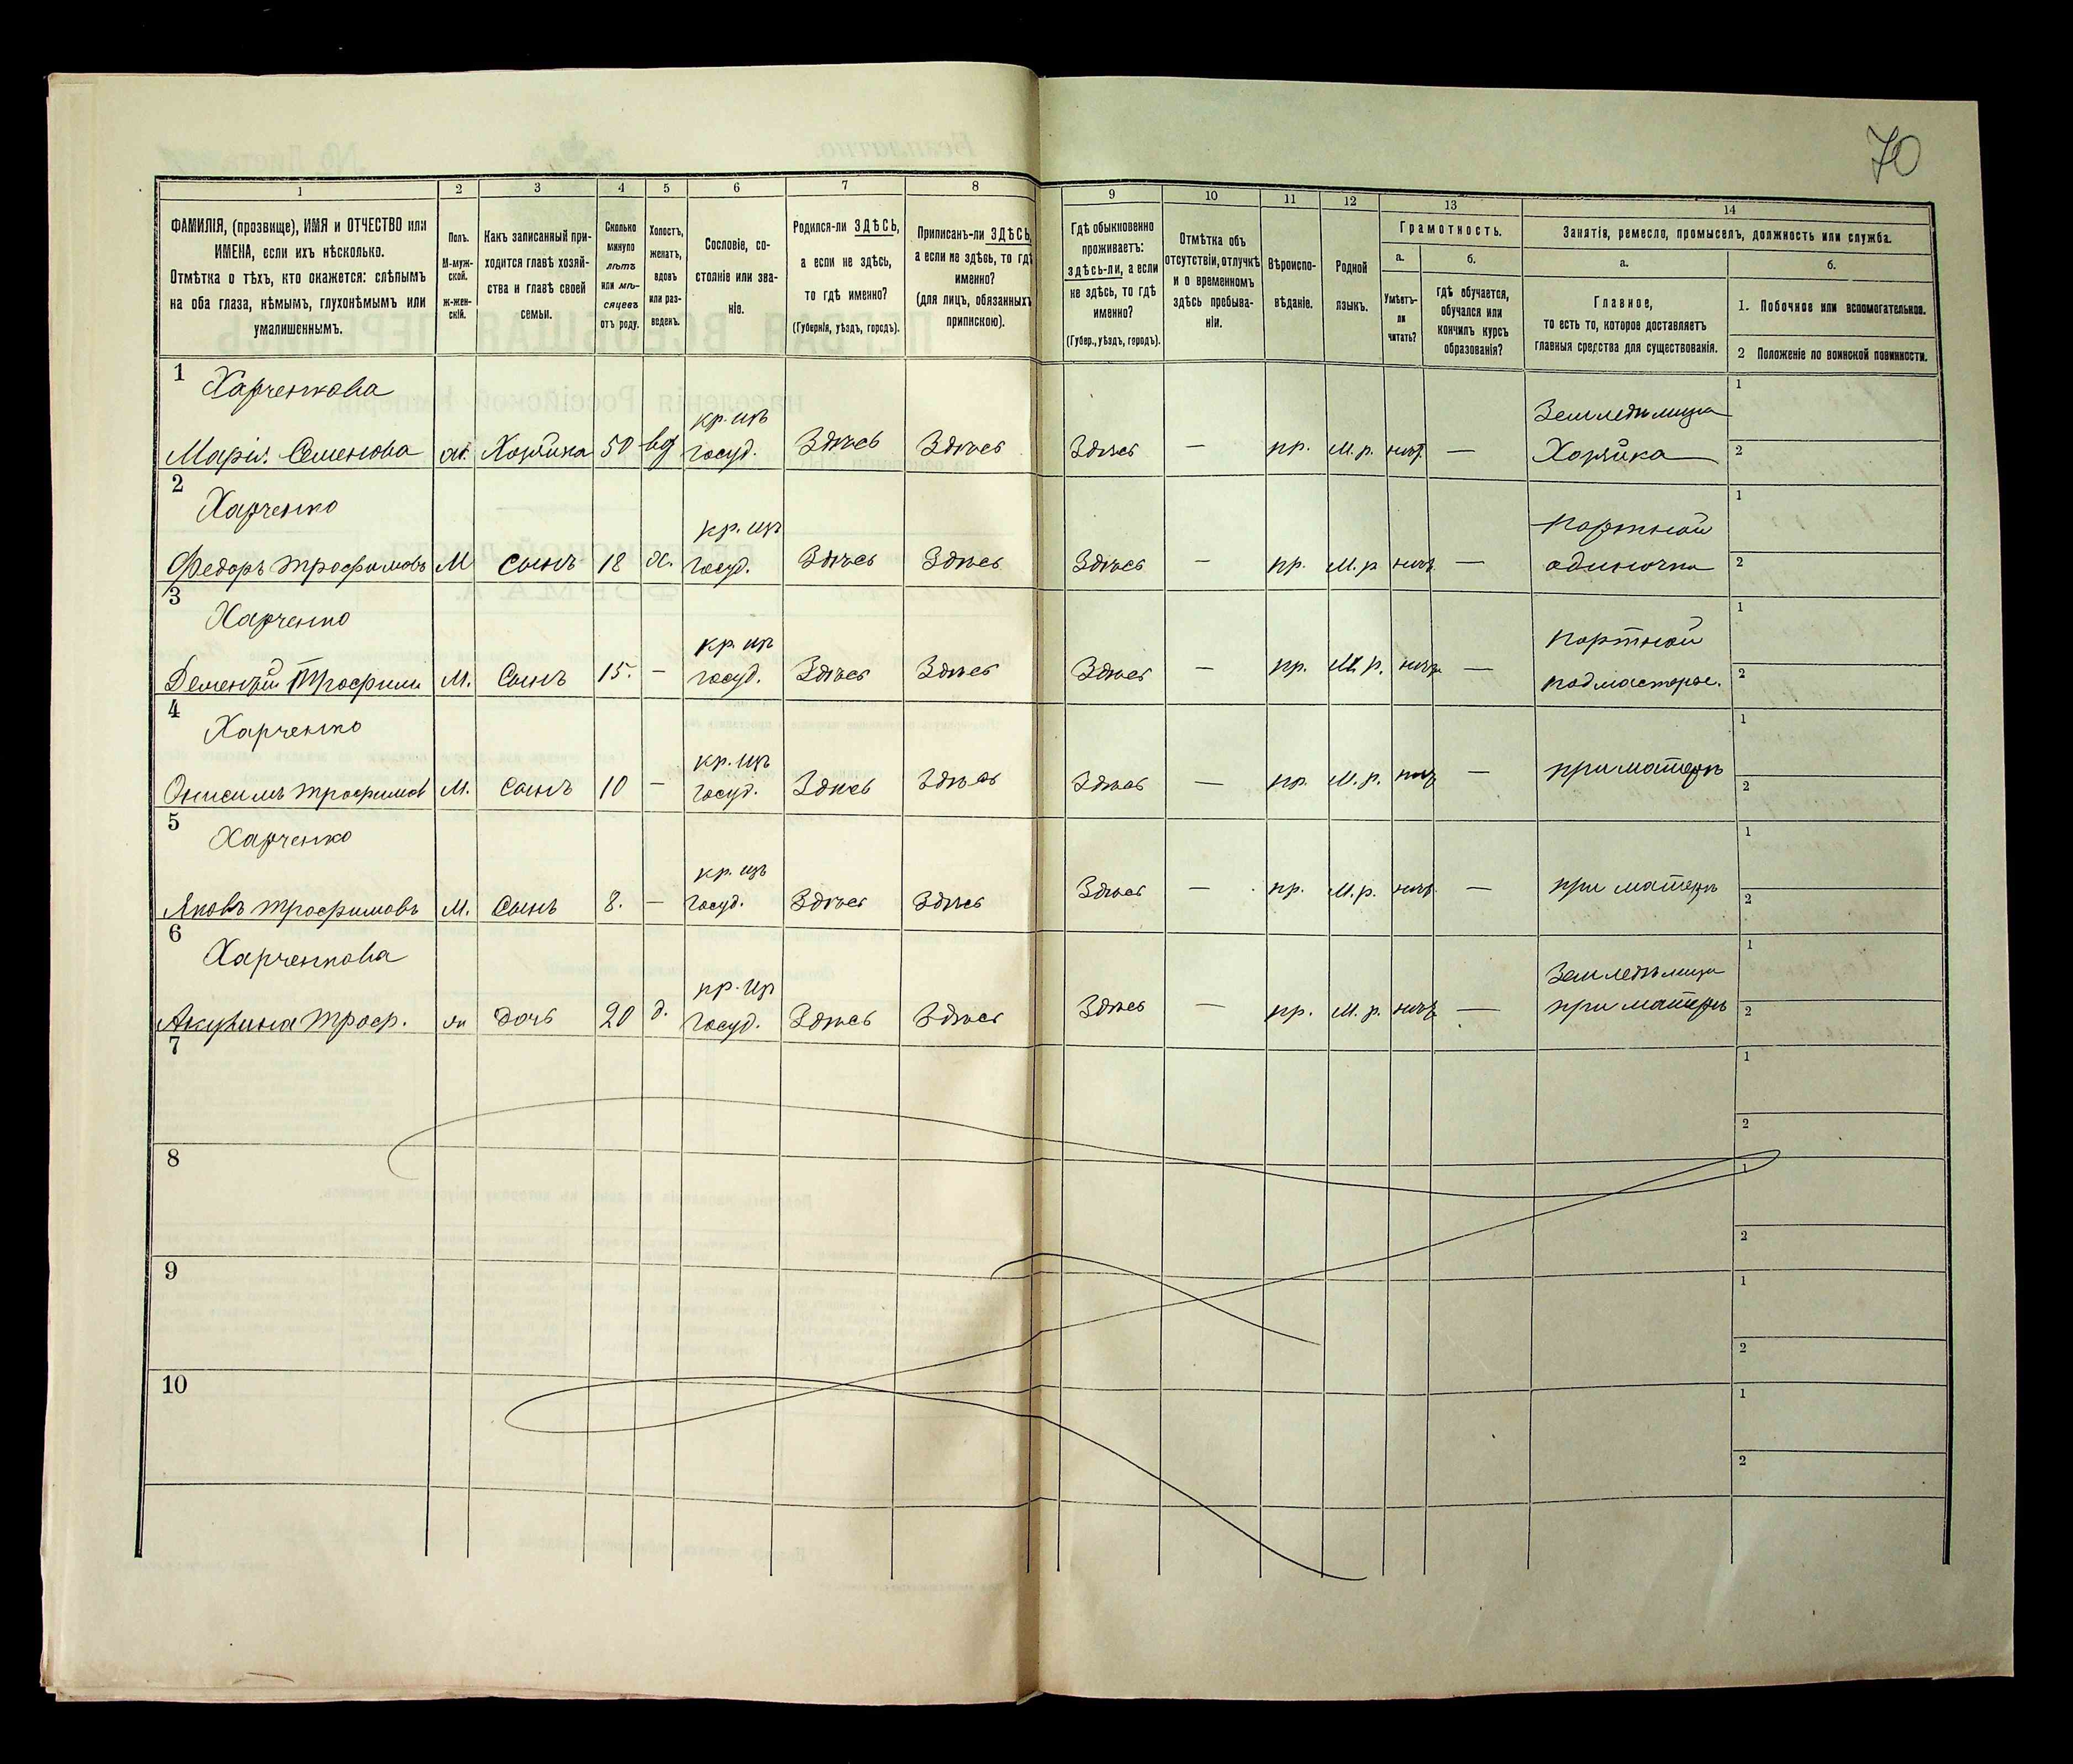 70
1 2 3 4 5 6 7 8 9 10 11 12 13 14
ФАМИЛІЯ, (прозвище), ИМЯ и ОТЧЕСТВО или
ИМЕНА, если ихъ нѣсколько.
Отмѣтка о тѣхъ, кто окажется: слѣпымъ
на оба глаза, нѣмымъ, глухонѣмымъ или
умалишеннымъ.
Полъ.
М-муж-
ской.
ж-жен-
скій.
Какъ записанный при-
ходится главѣ хозяй-
ства и главѣ своей
семьи.
Сколько
минуло
лѣтъ
или мѣ-
сяцевъ
отъ роду.
Холостъ,
женатъ,
вдовъ
или раз-
веденъ.
Сословіе, со-
стояніе или зва-
ніе.
Родился-ли ЗДѢСЬ,
а если не здѣсь,
то гдѣ именно?
(Губернія, уѣздъ, городъ).
Приписанъ-ли ЗДѢСЬ,
а если не здѣсь, то гдѣ
именно?
(для лицъ, обязанныхъ
припискою).
Гдѣ обыкновенно
проживаетъ:
здѣсь-ли, а если
не здѣсь, то гдѣ
именно?
(Губер., уѣздъ, городъ).
Отмѣтка объ
отсутствіи, отлучкѣ
и о временномъ
здѣсь пребыва-
ніи.
Вѣроиспо-
вѣданіе.
Родной
языкъ.
Грамотность.
а.
Умѣетъ-
ли
читать?
б.
гдѣ обучается,
обучался или
кончилъ курсъ
образованія?
Занятія, ремесло, промыселъ, должность или служба.
а.
Главное,
то есть то, которое доставляетъ
главныя средства для существованія.
б.
1. Побочное или вспомогательное.
2 Положеніе по воинской повинности.
1 Харченкова кр. изъ Земледѣлица 1
Марія Семенова ж. Хозяйка 50 вд госуд. Здѣсь Здѣсь Здѣсь — пр. М. р. нѣт. — Хозяйка 2
2 Харченко кр. изъ портной 1
Федоръ Трофимовъ М Сынъ 18 х. госуд. Здѣсь Здѣсь Здѣсь — пр. М. р нѣтъ — одиночка 2
3 Харченко кр. изъ портной 1
Дементій Трофим М. Сынъ 15. — госуд. Здѣсь Здѣсь Здѣсь — пр. М. р. нѣтъ — подмастерье. 2
4 Харченко кр. изъ при матери 1
Онисимъ Трофимов М. Сынъ 10 — госуд. Здѣсь Здѣсь Здѣсь — пр. М. р. нѣтъ — 2
5 Харченко кр. изъ 1
Яковъ Трофимовъ М. Сынъ 8. — госуд. Здѣсь Здѣсь Здѣсь — пр. М. р. нѣтъ — при матери 2
6 Харченкова кр. из Земледѣлица 1
Акулина Троф. ж Дочь 20 д. госуд. Здѣсь Здѣсь Здѣсь — пр. М. р. нѣтъ — при матери 2
7 1
2
8 1
2
9 1
2
10 1
2